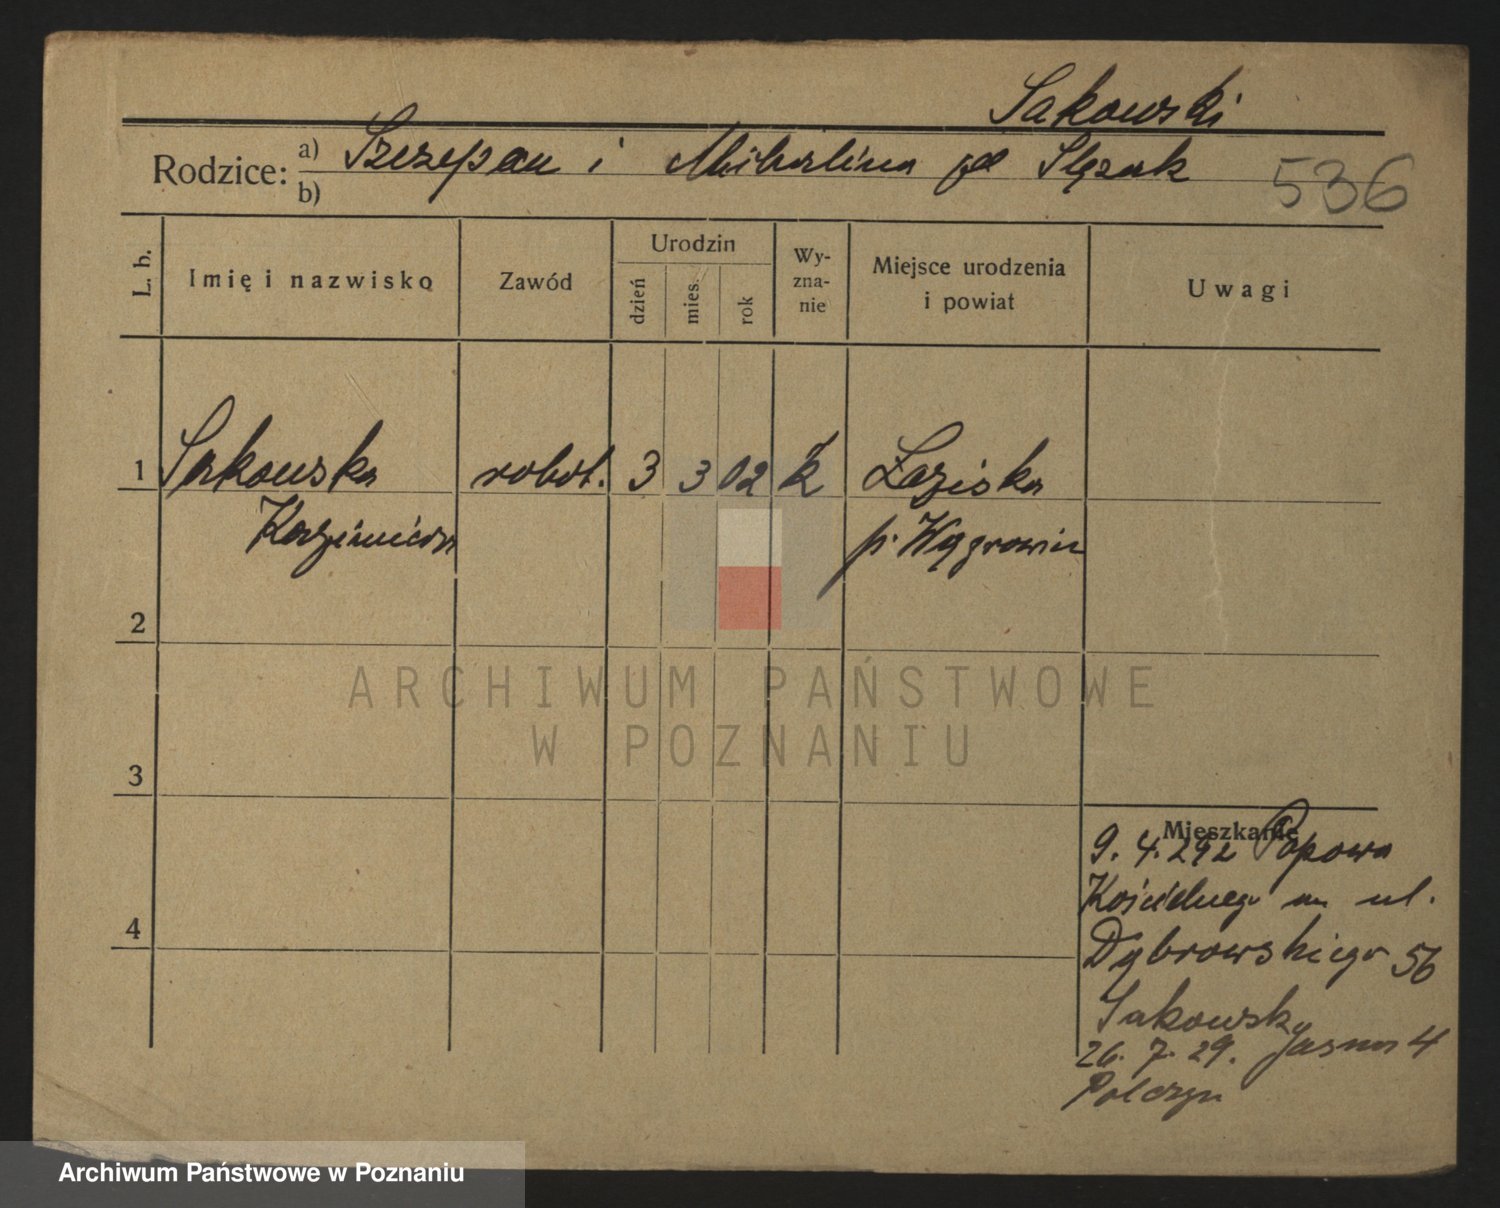 Sakowski
Rodzice: a) Szczepan i Michalina Ślęzak
b)
536
L. b.
Imię i nazwisko
Zawód
Urodzin
dzień
mies.
rok
Wy-
zna-
nie
Miejsce urodzenia
i powiat
Uwagi
1 Sakowska robot. 3 3 02 k Laziska
Kazimiera p. Wągrowiec
2
3
4
Mieszkanie
9. 4. 29 z Popowa
Kościelnego na ul.
Dąbrowskiego 56
Sakowski
26. 7. 29. Jasna 4
ARCHIWUM PAŃSTWOWE
W POZNANIU
Archiwum Państwowe w Poznaniu